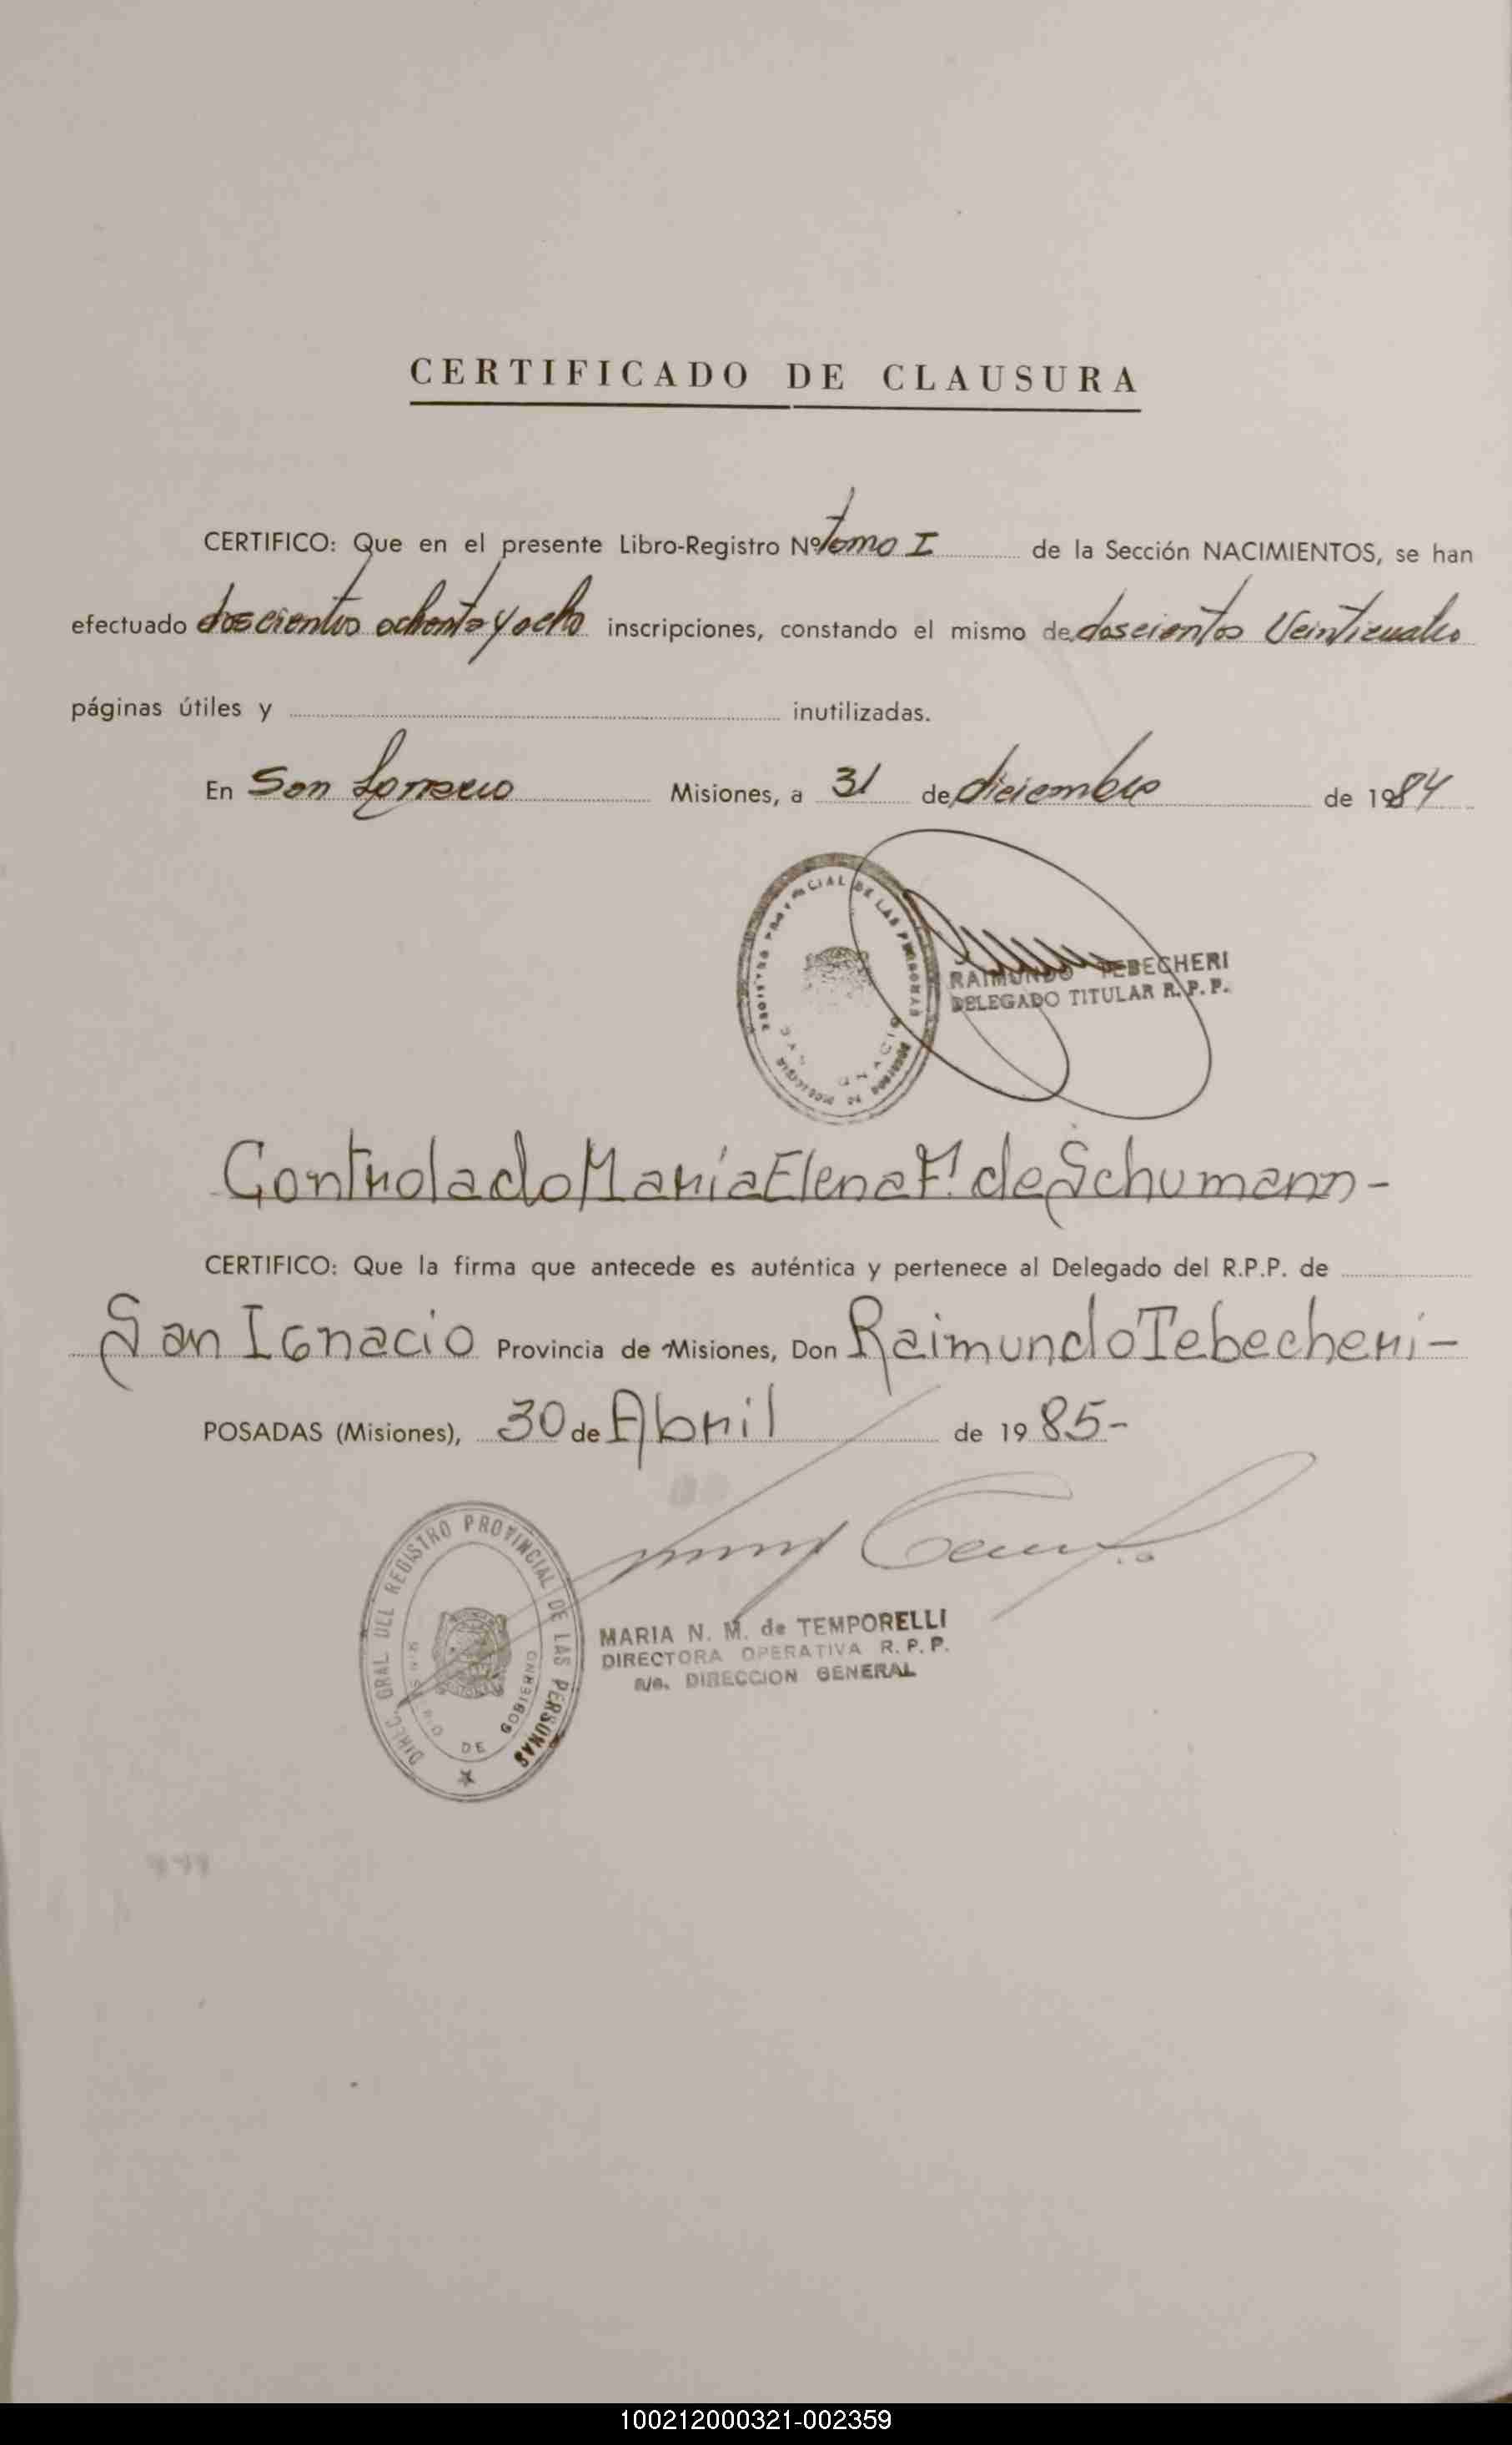 CERTIFICADO DE CLAUSURA
CERTIFICO: Que en el presente Libro-Registro Nº tomo I de la Sección NACIMIENTOS, se han
efectuado doscientos ochenta y ocho inscripciones, constando el mismo de doscientos Veinticuatro
páginas útiles y inutilizadas.
En San Misiones, a 31 de diciembre de 1984
REGISTRO PROVINCIAL DE LAS PERSONAS
RAIMUNDO TEBECHERI
DELEGADO TITULAR R. P. P.
Controlado María Elena F. de Schumann -
CERTIFICO: Que la firma que antecede es auténtica y pertenece al Delegado del R.P.P. de
San Ignacio Provincia de Misiones, Don Raimundo Tebecheri -
POSADAS (Misiones), 30 de Abril de 1985-
DIREC. GRAL DEL REGISTRO PROVINCIAL DE LAS PERSONAS
DE GOBIERNO
MARIA N. M. de TEMPORELLI
DIRECTORA OPERATIVA R. P. P.
a/c. DIRECCION GENERAL
100212000321-002359